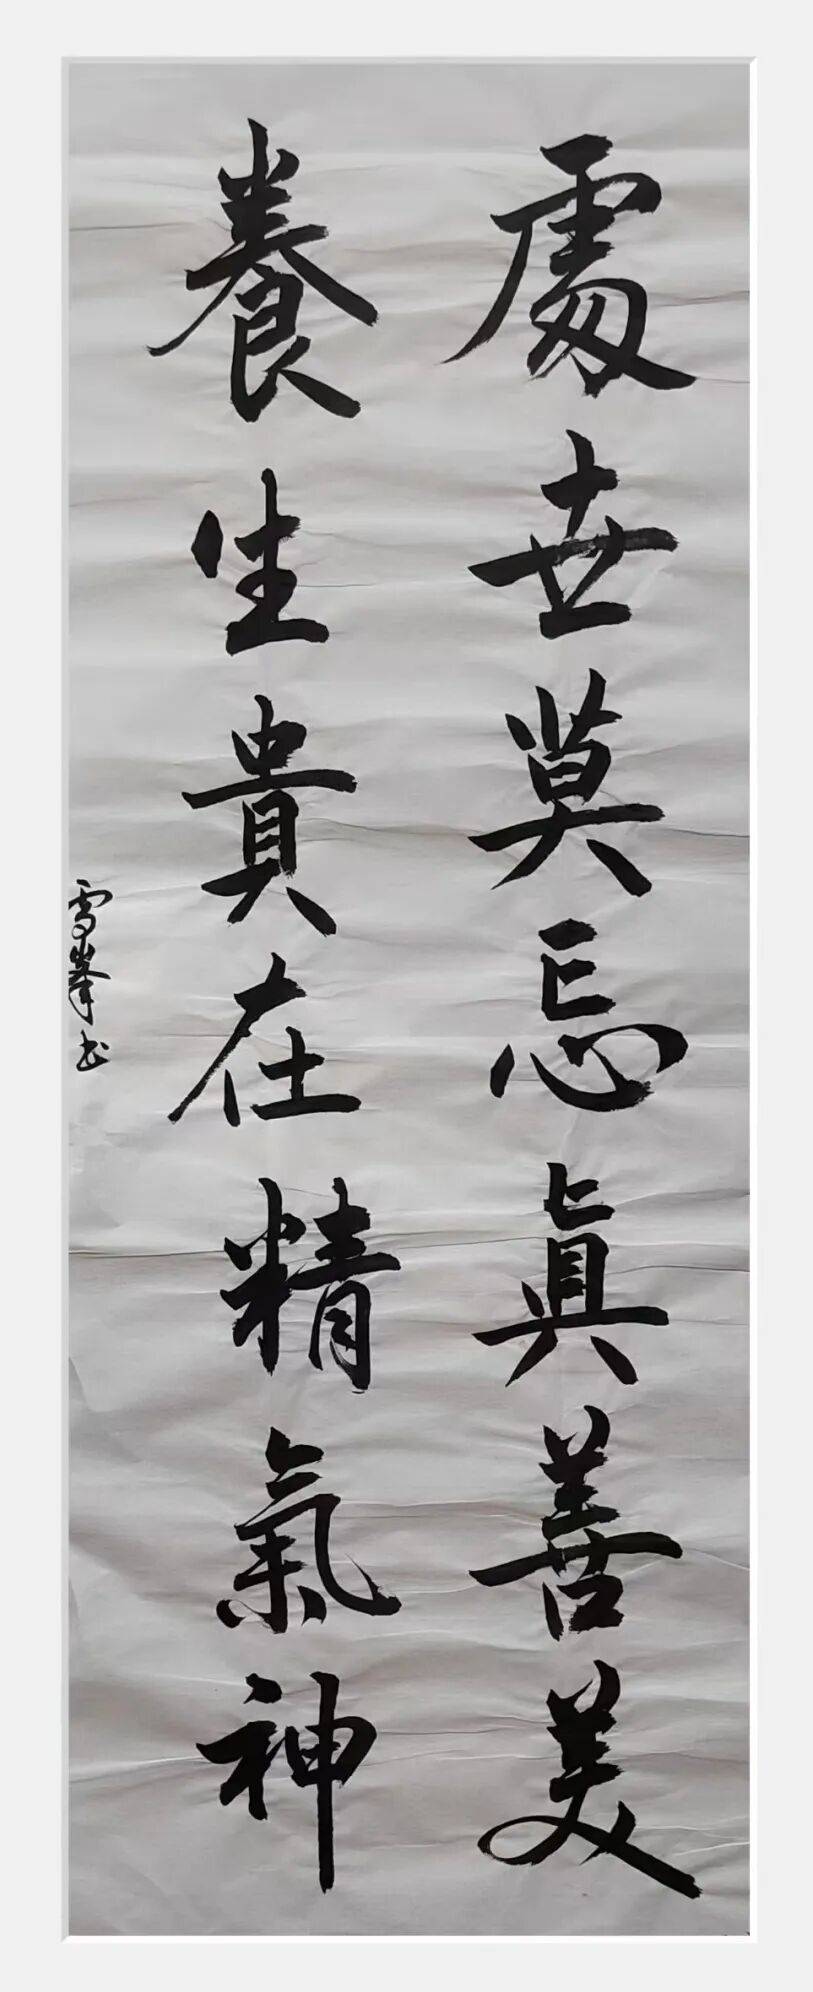 處世莫忘真善美
養生貴在精氣神
雪峯书